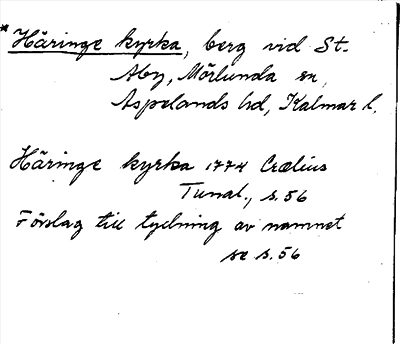 * Häringe kyrka, berg vid St.
Aby, Mörlunda sn,
Aspelands hd, Kalmar l.
Häringe kyrka 1774 Crælius
Tunal., s. 56
Förslag till tydning av namnet
se s. 56